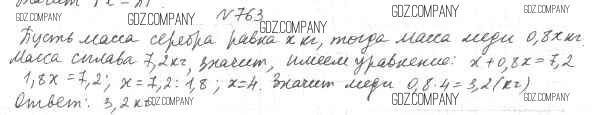 GDZ.COMPANY
N763 GDZ.COMPANY GDZ.COMPANY
Пусть масса серебра равна x кг, тогда масса меди 0,8x кг.
Масса сплава 7,2 кг, значит, имеем уравнение: x + 0,8x = 7,2
1,8x = 7,2; x = 7,2 : 1,8; x = 4. Значит меди 0,8 · 4 = 3,2 (кг)
Ответ: 3,2 кг GDZ.COMPANY GDZ.COMPANY GDZ.COMPANY